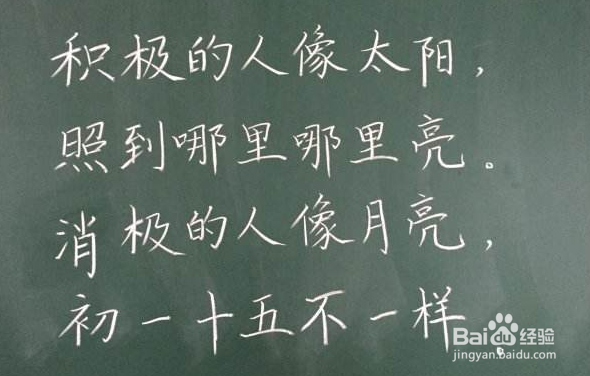 积极的人像太阳，
照到哪里哪里亮。
消极的人像月亮，
初一十五不一样。
Baidu经验
jingyan.baidu.com